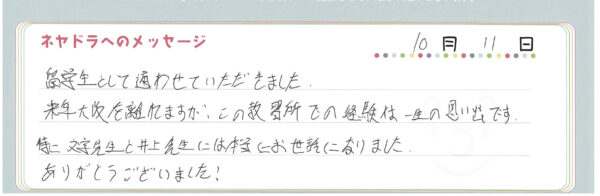 ネヤドラへのメッセージ
10月 11日
留学生として通わせていただきました.
来年大阪を離れますが、この教習所での経験は一生の思い出です.
特に 先生と井上先生には本当にお世話になりました.
ありがとうございました!